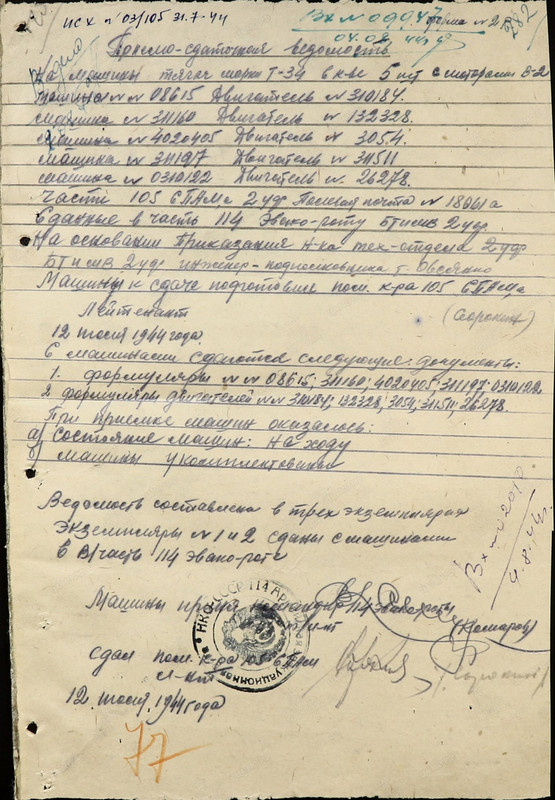 исх № 03/105 31.7-44
Вх № 09947 форма № 2
04.08.44г.
282
Приемо-сдаточная ведомость
На машины тягач марки Т-34 в к-ве 5 шт с моторами В-2
машина № 08615 Двигатель № 310184.
машина № 311160 Двигатель № 132328.
машина № 4020405 Двигатель № 3054.
машина № 311197 Двигатель № 311511
машина № 0310122 Двигатель №. 26278.
части 105 СПАМа 2 уд. Полевая почта № 18061а
Сданные в часть 114 Эвако-роту БТиМВ 2 уд.
На основании Приказания Н-ка тех-отдела 2 уд
БТиМВ 2 уд. инженер-подполковника т. Овсеенко
Машины к сдаче подготовил пом. к-ра 105 СПАМа
Лейтенант (Сорокин)
12 июля 1944 года.
С машинами сдаются следующие документы:
1. формуляры №№ 08615; 311160; 4020405; 311197; 0310122
2 формуляры двигателей №№ 310184; 132328; 3054; 311511; 26278.
При приемке машин оказалось:
а) Состояние машин: На ходу
б) машины укомплектованы
Ведомость составлена в трех экземплярах
Экземпляры № 1 и 2 сданы с машинами
в В/часть 114 эвако-рота
Вх № 2010
4.8.44г.
Машины принял командир 114 эвакороты
(Комаров)
НКО СССР 114
сдал пом. к-ра 105 СПАМ
л-нт Сорокин
12 июля 1944 года
77